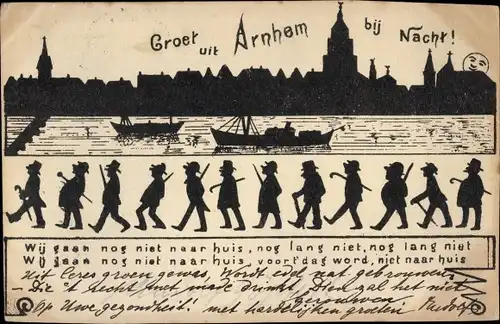 Groet uit Arnhem bij Nacht!
Wij gaan nog niet naar huis, nog lang niet, nog lang niet
Wij gaan nog niet naar huis, voort dag word, niet naar huis
Uit Ceres groen gewas, Wordt edel nat gebrouwen
- Die 't slecht met made drinkt, Dien zal het niet
gerouwen
Op Uwe gezondheid! met hartelijken groeten Rudolf